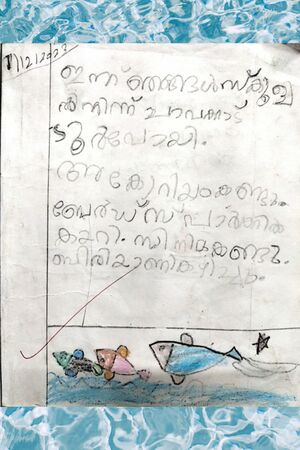 7/12/2023
ഇന്ന് ഞങ്ങൾ സ്കൂള
ൽ നിന്ന് ചാവക്കാട്
ടൂർ പോയി.
അക്വോറിയം കണ്ടു.
ബേർഡ്സ് പാർക്കിൽ
കയറി. സിനിമ കണ്ടു.
ബിരിയാണി കഴിച്ചു.